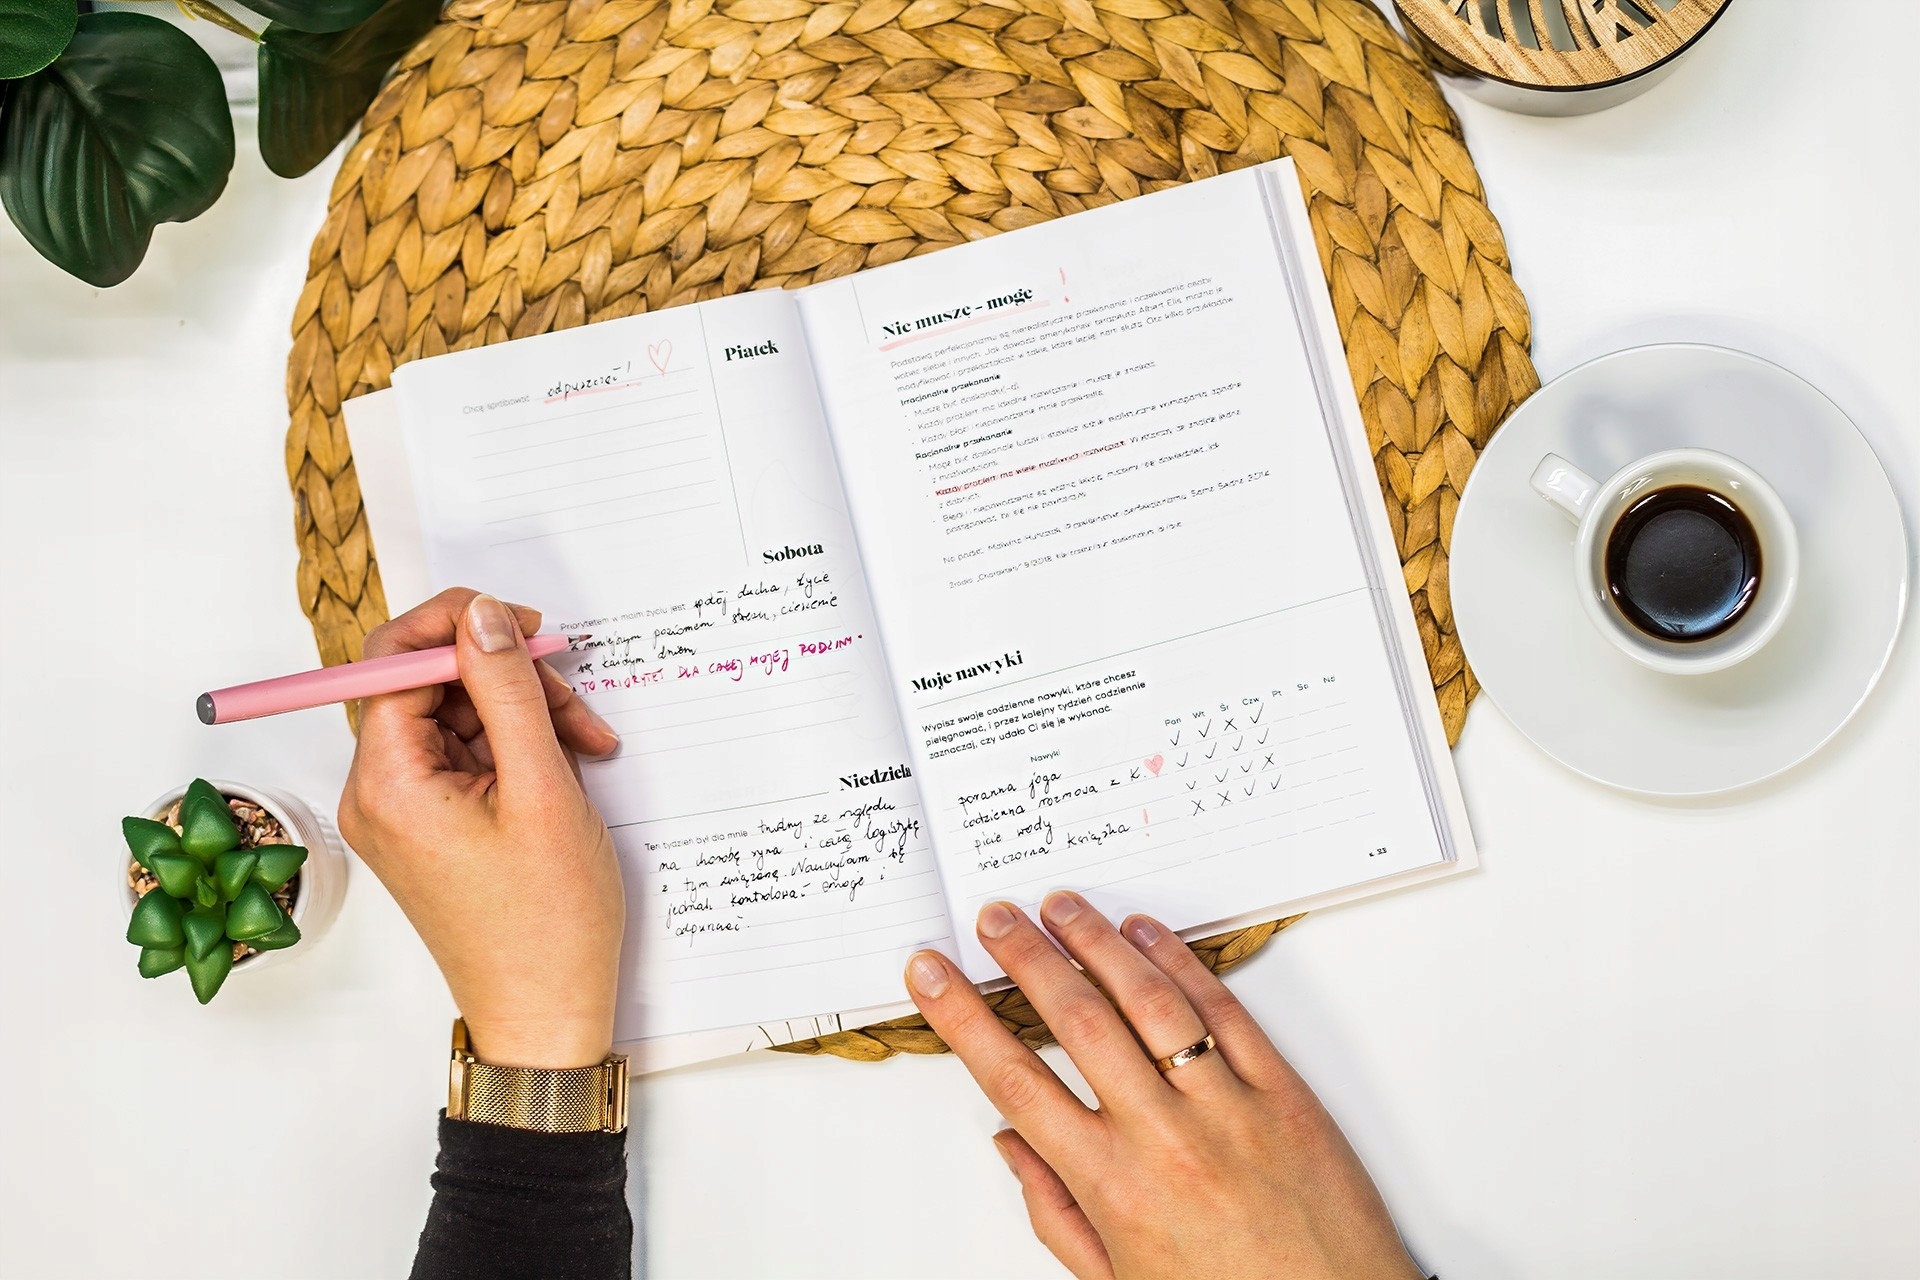 Piątek
Chcę spróbować odpuszczać!
Sobota
Priorytetem w moim życiu jest spokój ducha, życie
z mniejszym poziomem stresu, cieszenie
się każdym dniem
TO PRIORYTET DLA CAŁEJ MOJEJ RODZINY.
Niedziela
Ten tydzień był dla mnie trudny ze względu
na chorobę syna i całą logistykę
z tym związaną. Nauczyłam się
jednak kontrolować emocje i
odpuszczać.
Nie muszę – mogę !
Podstawą perfekcjonizmu są nierealistyczne przekonania i oczekiwania osoby
wobec siebie i innych. Jak dowodzi amerykański terapeuta Albert Ellis, można je
modyfikować i przekształcać w takie, które lepiej nam służą. Oto kilka przykładów
Irracjonalne przekonanie
• Muszę być doskonały(-a).
• Każdy problem ma idealne rozwiązanie i muszę je znaleźć.
• Każdy błąd i niepowodzenie mnie przekreśla.
Racjonalne przekonanie
• Mogę być doskonale ludzki i stawiać sobie realistyczne wymagania zgodne
z możliwościami.
• Każdy problem ma wiele możliwych rozwiązań.
z dobrych.
• Błędy i niepowodzenia są
Źródło: „Charaktery" 9/2018
Moje nawyki
Wypisz swoje codzienne nawyki, które chcesz
pielęgnować, i przez kolejny tydzień codziennie
zaznaczaj, czy udało Ci się je wykonać.
Nawyki Pon Wt Śr Czw Pt So Nd
poranna joga ✓ ✓ X ✓
codzienna rozmowa z K. ✓ ✓ ✓ ✓
picie wody ✓ ✓ ✓ X
wieczorna książka ! X X ✓ ✓